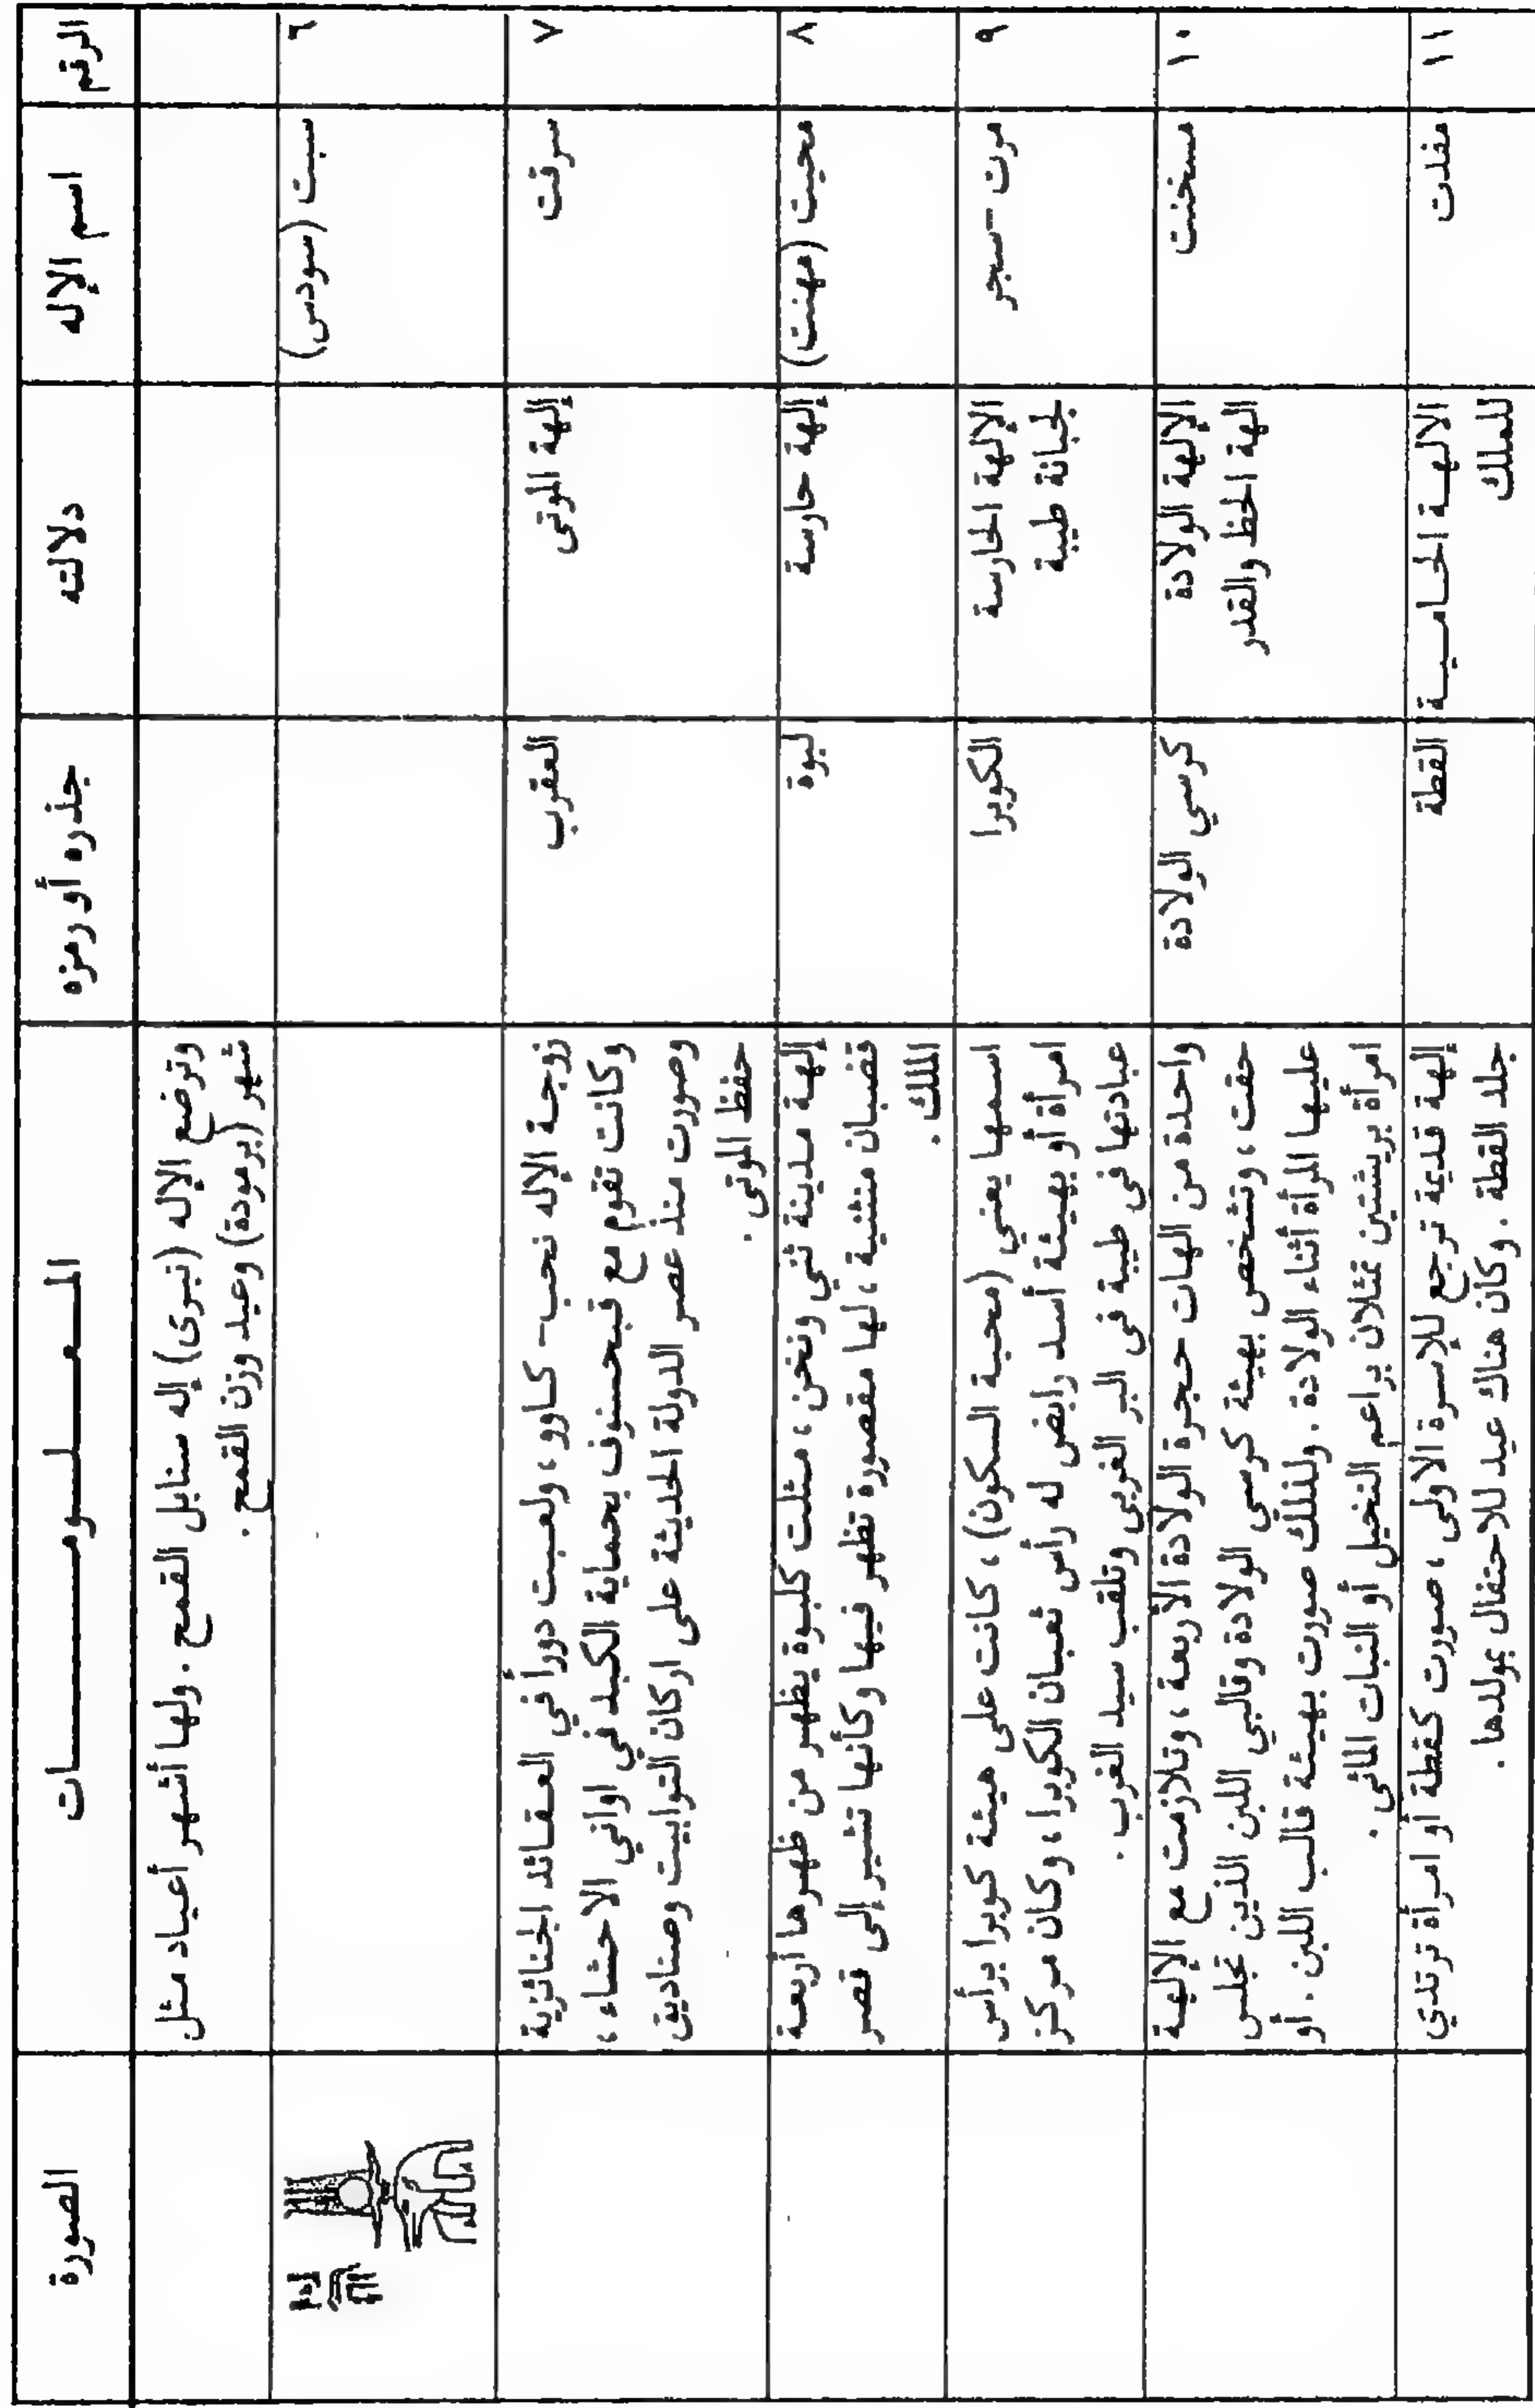 الرقم
اسم الإله
دلالته
جذره أو رمزه
المعلومات
الصورة
وترضع الإله (نبرى) إله سنابل القمح . ولها أشهر أعياد مثل
شهر (برمودة) وعيد وزن القمح .
٦
سبت (سودس)
٧
سرقت
إلهة الموتى
العقرب
زوجة الإله نحب - كاوو ، ولعبت دوراً في العقائد الجنائزية
وكانت تقوم مع قبحسنوف بحماية الكبد في اواني الاحشاء ،
وصورت منذ عصر الدولة الحديثة على اركان التوابيت وصناديق
حفظ الموتى .
٨
محيت (مهنت)
إلهة حارسة
لبوة
إلهة مدينة ثني ونخن ، مثلت كلبوة يظهر من ظهرها أربعة
قضبان منثنية ، لها مقصورة تظهر فيها وكأنها تشير إلى قصر
الملك .
٩
مرت - سجر
الإلهة الحارسة
لجبانة طيبة
الكوبرا
اسمها يعني (محبة السكون) ، كانت على هيئة كوبرا برأس
امرأة أو بهيئة أسد رابض له رأس ثعبان الكوبرا ، وكان مركز
عبادتها في طيبة في البر الغربي وتلقب سيد الغرب .
١٠
مسخنت
الإلهة الولادة
الهة الحظ والقدر
كرسي الولادة
واحدة من الهات حجرة الولادة الأربعة ، وتلازمت مع الإلهة
حقت ، وتشخص بهيئة كرسي الولادة وقالبي اللبن الذين تجلس
عليها المرأة أثناء الولادة . ولذلك صورت بهيئة قالب اللبن . أو
امرأة بريشتين تمثلان براعم النخيل أو النبات المائي .
١١
مفدت
الالهة الحامية
للملك
القطة
إلهة قديمة ترجع للإسرة الاولى ، صورت كقطة أو امرأة ترتدي
جلد القطة . وكان هناك عيد للاحتفال بمولدها .